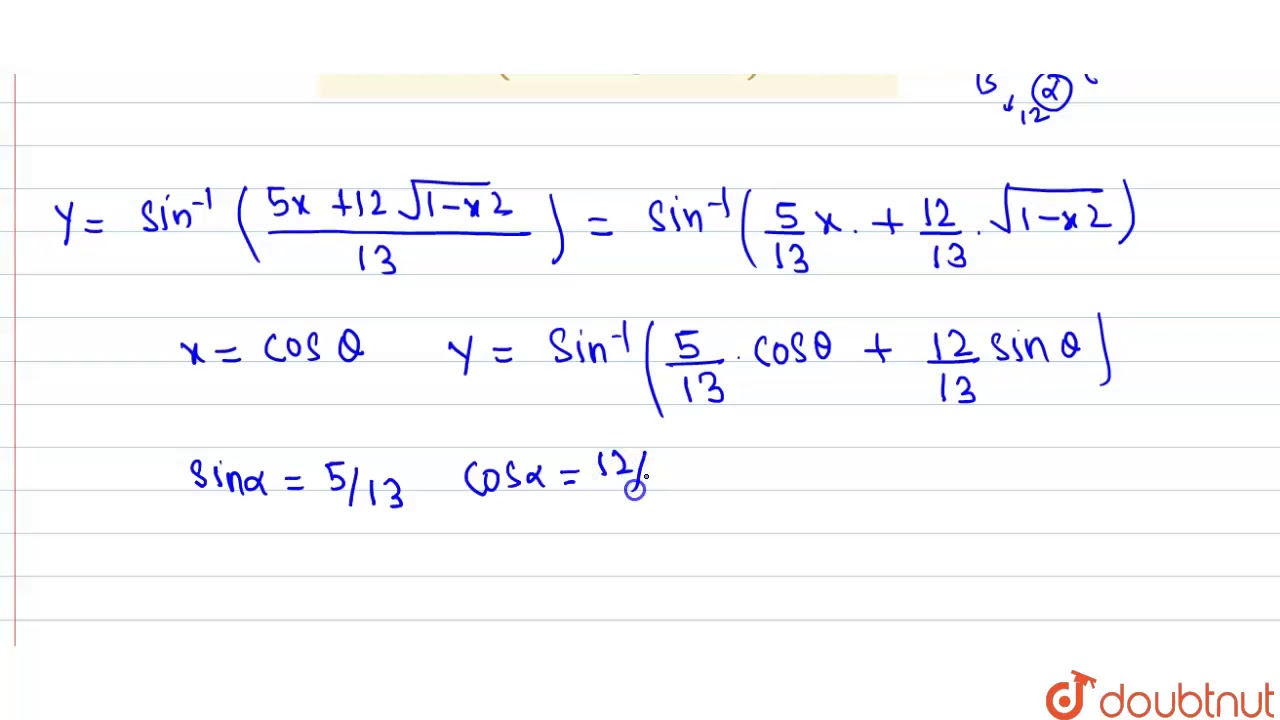 12 α
Y = sin⁻¹ ( 5x + 12 √1-x2 / 13 ) = sin⁻¹ ( 5/13 x . + 12/13 . √1-x2 )
x = cos θ Y = sin⁻¹ ( 5/13 . cosθ + 12/13 sin θ )
sinα = 5/13 cosα = 12/
doubtnut